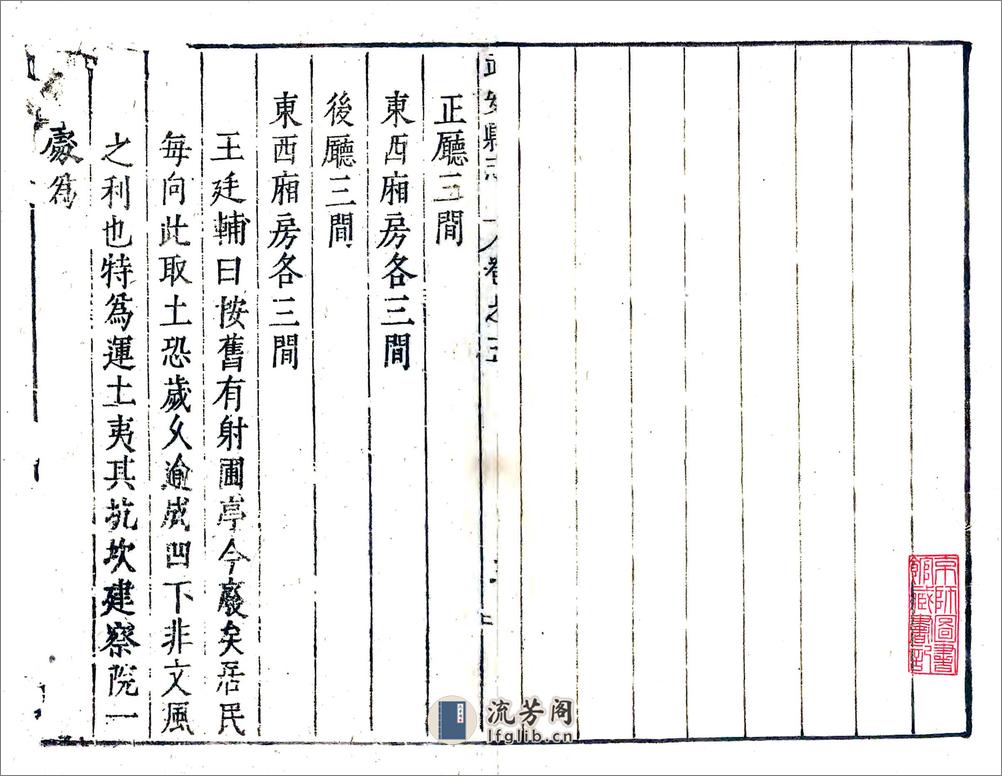 京師圖書
館藏書記
武安縣志 卷之五
正廳三間
東西廂房各三間
後廳三間
東西廂房各三間
王廷輔曰按舊有射圃亭今廢矣居民
每向此取土恐歲久逾成凹下非文風
之利也特爲運土夷其坑坎建察院一
處爲
流芳阁
lfglib.cn